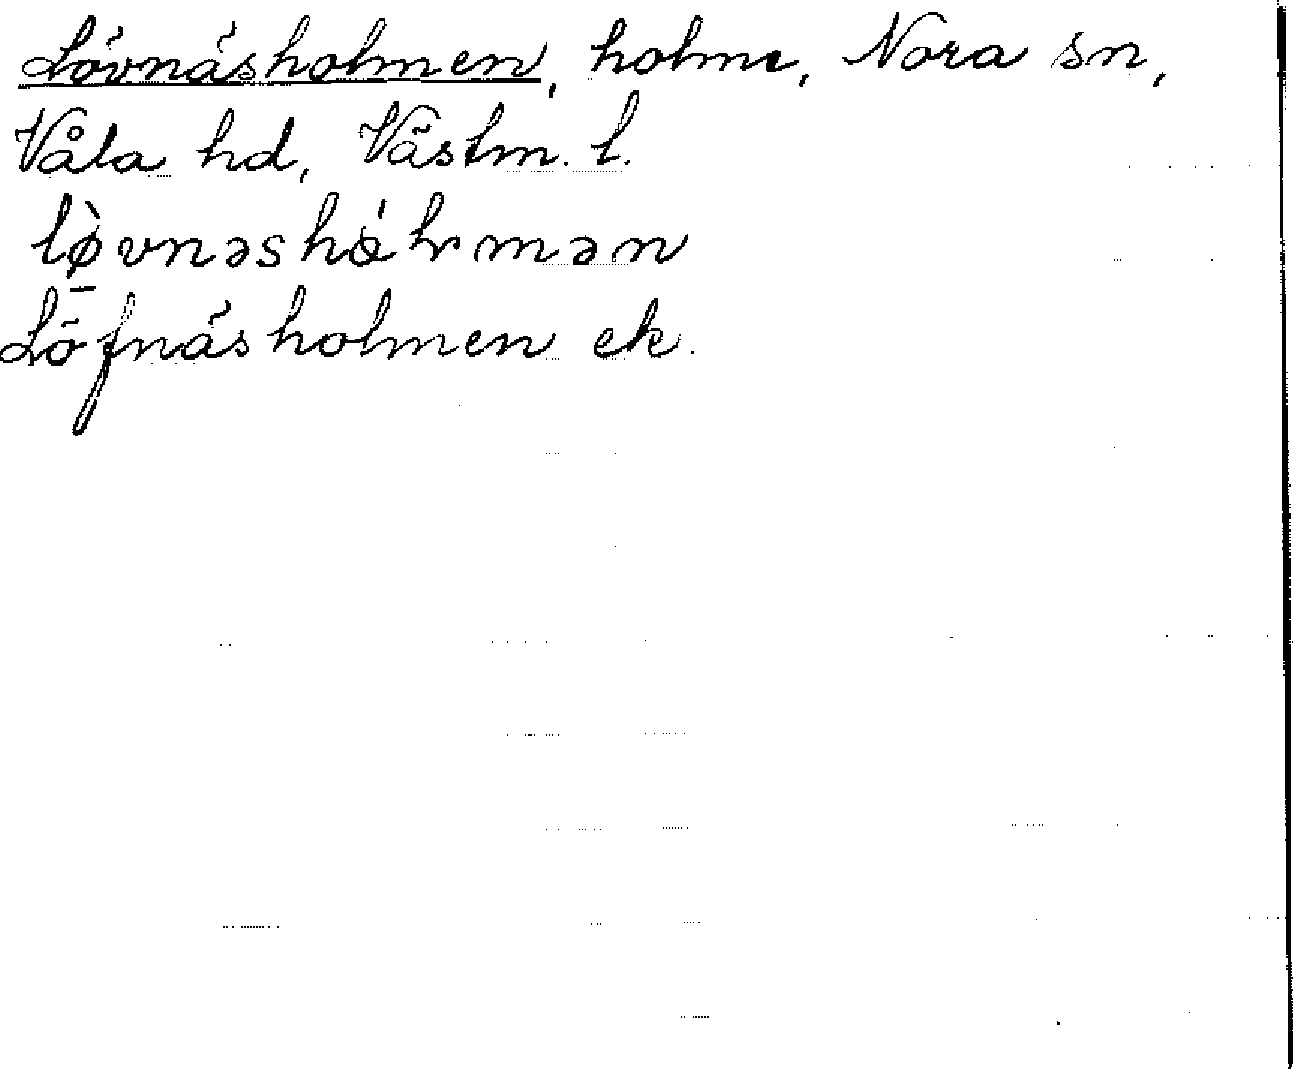 Lövnäsholmen, holme, Nora sn,
Våla hd, Västm. l.
Löfnäsholmen ek.